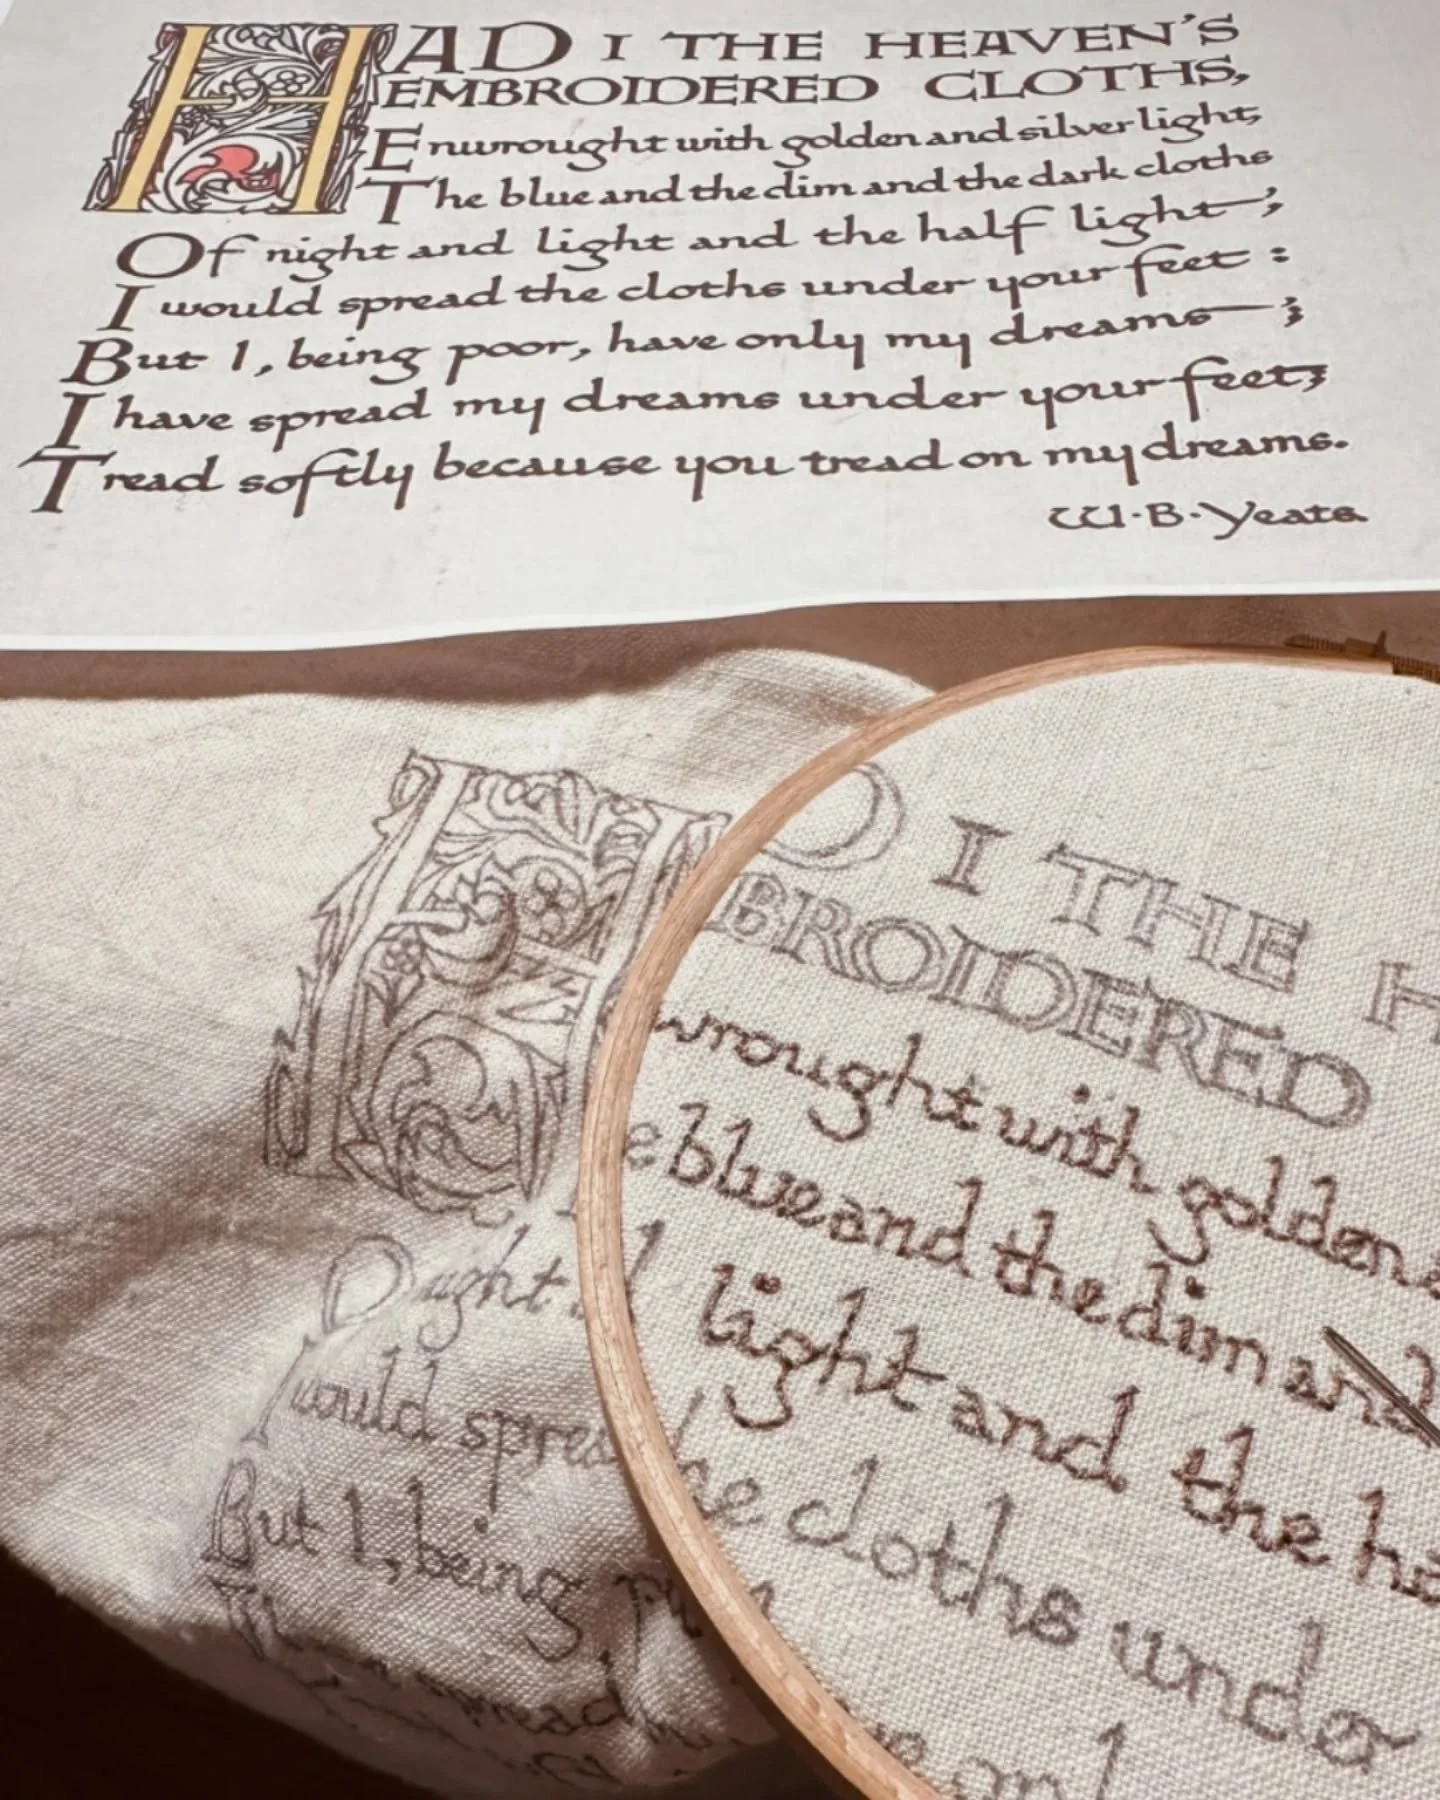 HAD I THE HEAVEN'S
EMBROIDERED CLOTHS,
Enwrought with golden and silver light,
The blue and the dim and the dark cloths
Of night and light and the half light;
I would spread the cloths under your feet:
But I, being poor, have only my dreams;
I have spread my dreams under your feet;
Tread softly because you tread on my dreams.
W·B·Yeats
H D I THE H
BROIDERED
wrought with golden
e blue and the dim and
O ight light and the ha
I would spread the cloths unde
But I, being